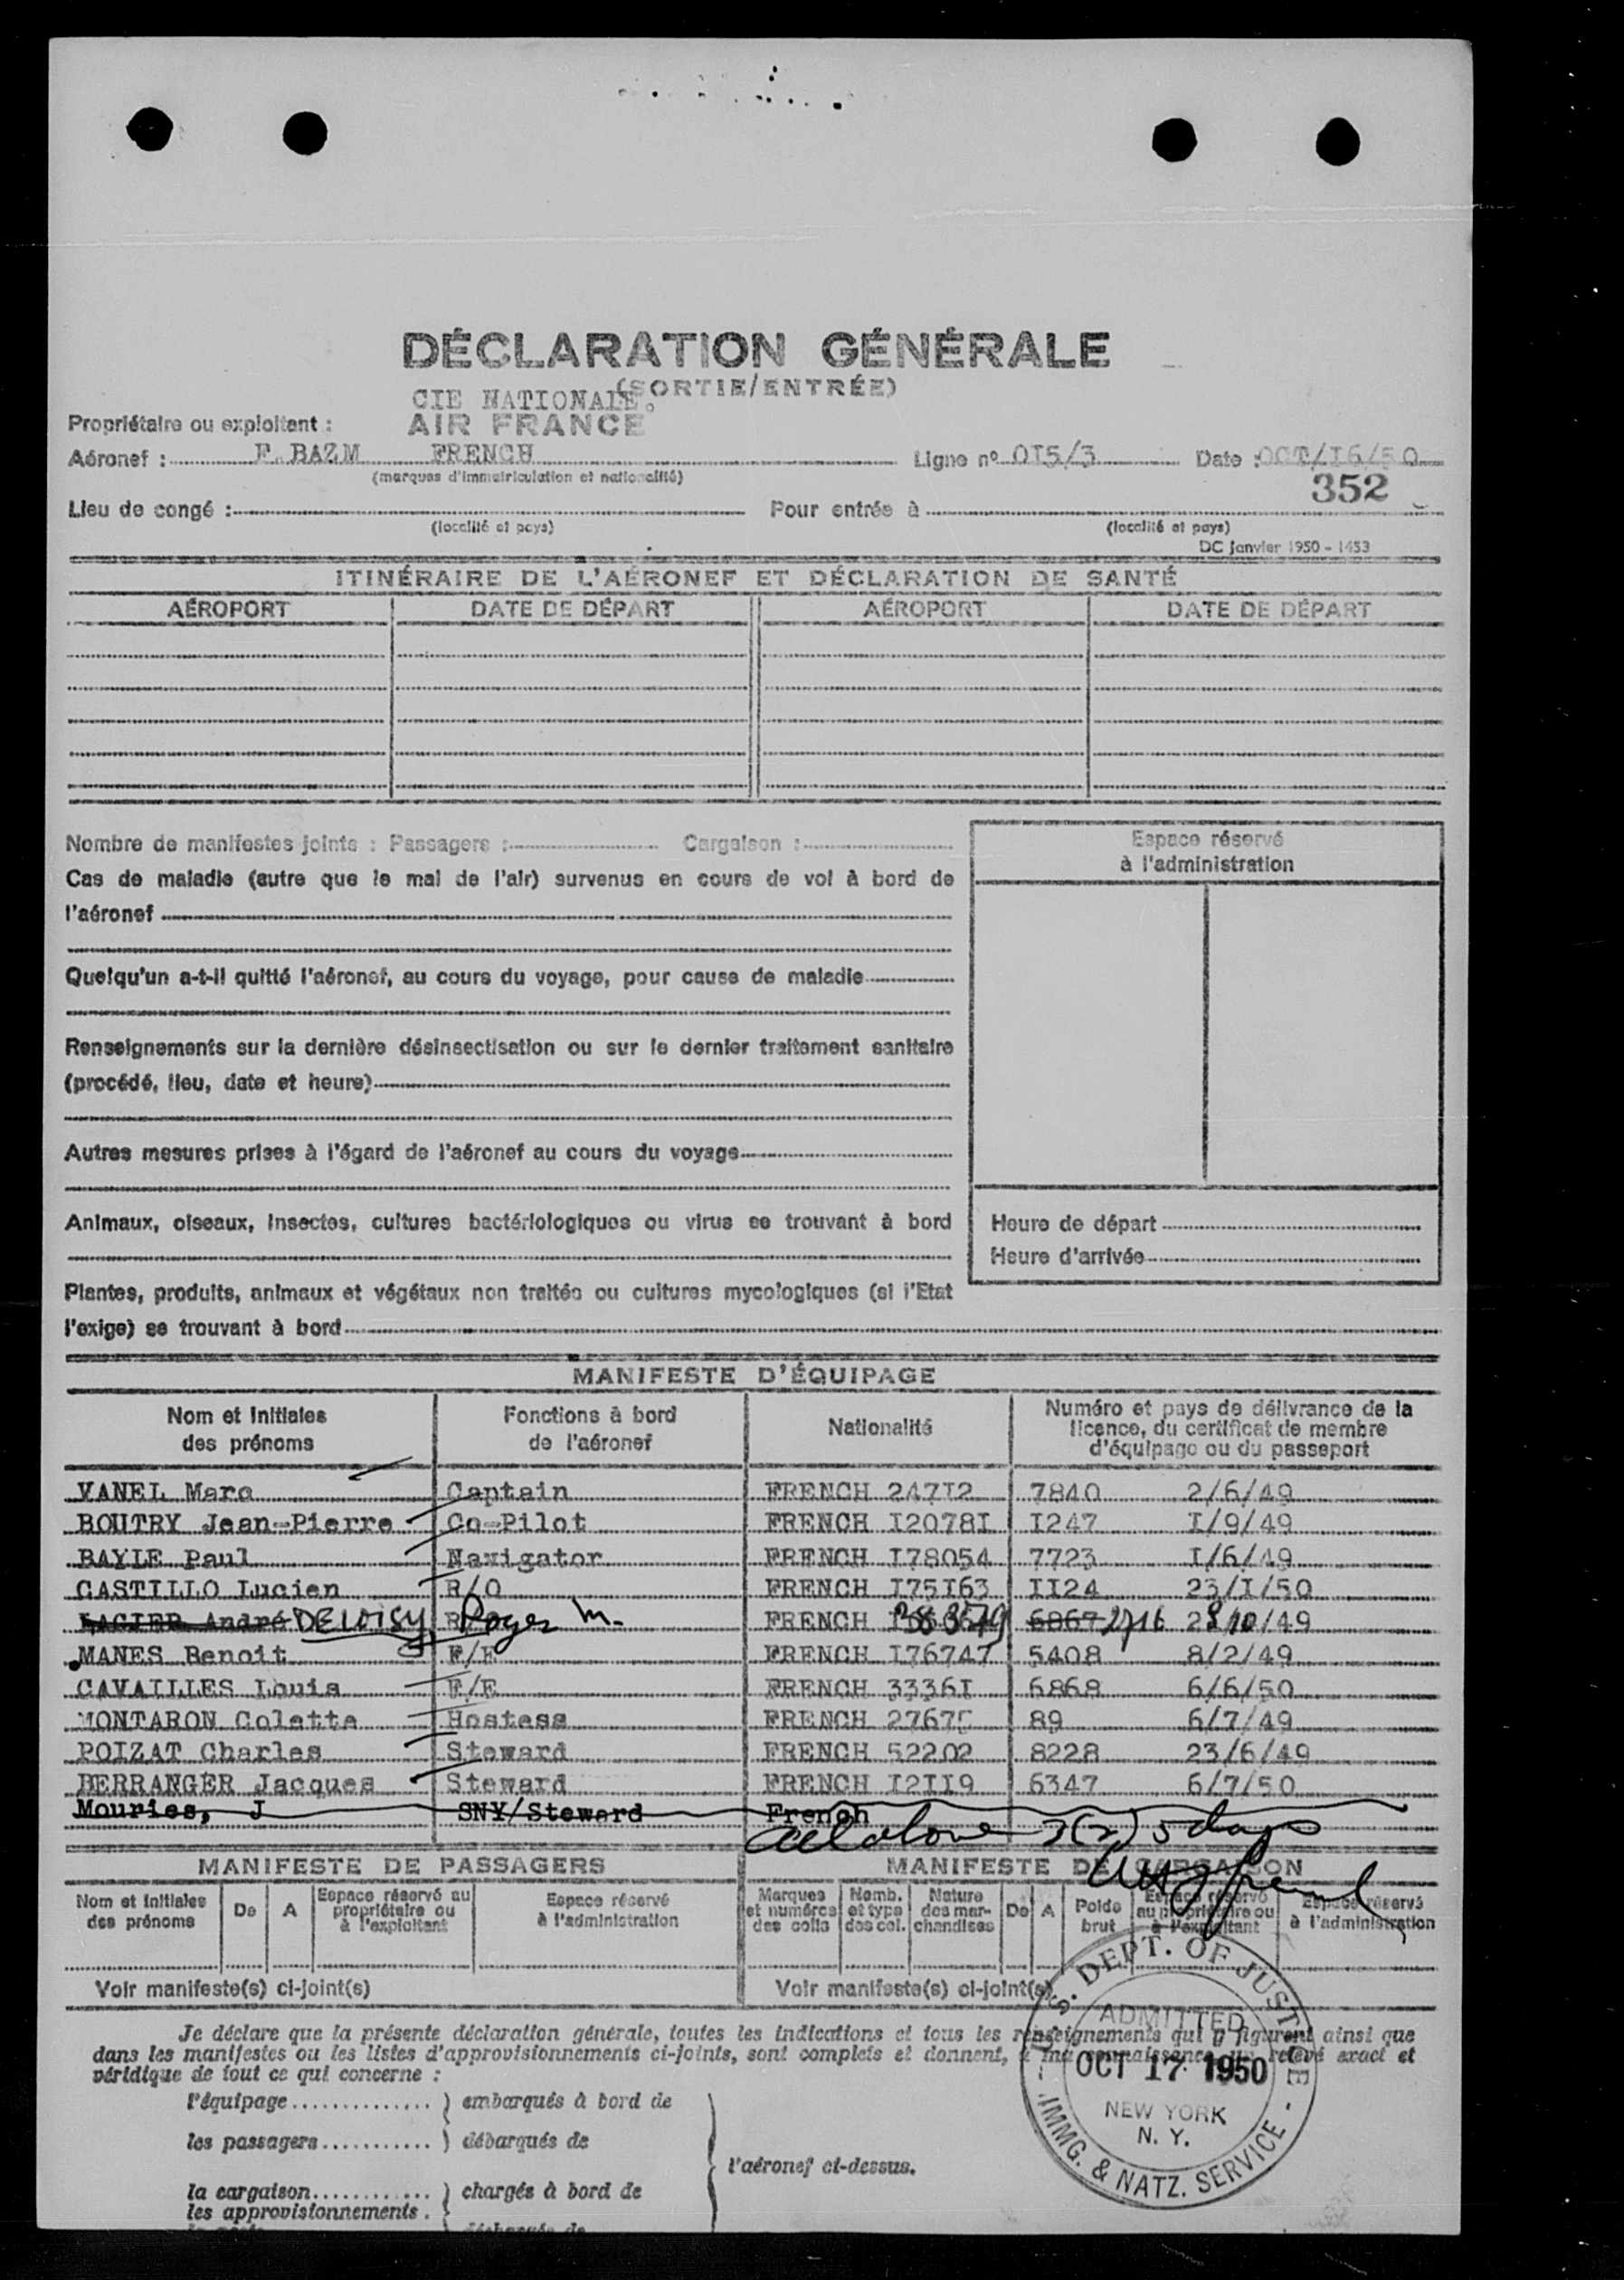 DÉCLARATION GÉNÉRALE
(SORTIE/ENTRÉE)
CIE NATIONALE
Propriétaire ou exploitant : AIR FRANCE
Aéronef : F.BAZM FRENCH Ligne nº 0I5/3 Date : OCT/I6/50
(marques d'immatriculation et nationalité)
352
Lieu de congé : Pour entrée à
(localité et pays) (localité et pays)
DC janvier 1950 - 1453
ITINÉRAIRE DE L'AÉRONEF ET DÉCLARATION DE SANTÉ
AÉROPORT DATE DE DÉPART AÉROPORT DATE DE DÉPART
Nombre de manifestes joints : Passagers : Cargaison :
Espace réservé
à l'administration
Cas de maladie (autre que le mal de l'air) survenus en cours de vol à bord de
l'aéronef
Quelqu'un a-t-il quitté l'aéronef, au cours du voyage, pour cause de maladie
Renseignements sur la dernière désinsectisation ou sur le dernier traitement sanitaire
(procédé, lieu, date et heure)
Autres mesures prises à l'égard de l'aéronef au cours du voyage
Animaux, oiseaux, insectes, cultures bactériologiques ou virus se trouvant à bord
Heure de départ
Heure d'arrivée
Plantes, produits, animaux et végétaux non traités ou cultures mycologiques (si l'Etat
l'exige) se trouvant à bord
MANIFESTE D'ÉQUIPAGE
Nom et initiales
des prénoms
Fonctions à bord
de l'aéronef
Nationalité
Numéro et pays de délivrance de la
licence, du certificat de membre
d'équipage ou du passeport
VANEL Marc Captain FRENCH 247I2 7840 2/6/49
BOUTRY Jean-Pierre Co-Pilot FRENCH I2078I I247 I/9/49
BAYLE Paul Navigator FRENCH I78054 7723 I/6/49
CASTILLO Lucien R/O FRENCH I75I63 II24 23/I/50
André DELOISY Roger M. FRENCH 6867 2716 /49
MANES Benoit F/E FRENCH I76747 5408 8/2/49
CAVAILLES Louis F/E FRENCH 3336I 6868 6/6/50
MONTARON Colette Hostess FRENCH 27675 89 6/7/49
POIZAT Charles Steward FRENCH 52202 8228 23/6/49
BERRANGER Jacques Steward FRENCH I2II9 6347 6/7/50
Mouries, J SNY/Steward French
all above 3(2) 5 days
MANIFESTE DE PASSAGERS MANIFESTE DE CARGAISON
Nom et initiales
des prénoms
De A
Espace réservé au
propriétaire ou
à l'exploitant
Espace réservé
à l'administration
Marques
et numéros
des colis
Nomb.
et type
des col.
Nature
des mar-
chandises
De A
Poids
brut
Espace réservé
au propriétaire ou
à l'exploitant
Espace réservé
à l'administration
Voir manifeste(s) ci-joint(s) Voir manifeste(s) ci-joint(s)
Je déclare que la présente déclaration générale, toutes les indications et tous les renseignements qui y figurent ainsi que
dans les manifestes ou les listes d'approvisionnements ci-joints, sont complets et donnent, à ma connaissance, un relevé exact et
véridique de tout ce qui concerne :
l'équipage ) embarqués à bord de
les passagers ) débarqués de
l'aéronef ci-dessus.
la cargaison ) chargés à bord de
les approvisionnements .
U.S. DEPT. OF JUSTICE
ADMITTED
OCT 17 1950
NEW YORK
N. Y.
IMMG. & NATZ. SERVICE